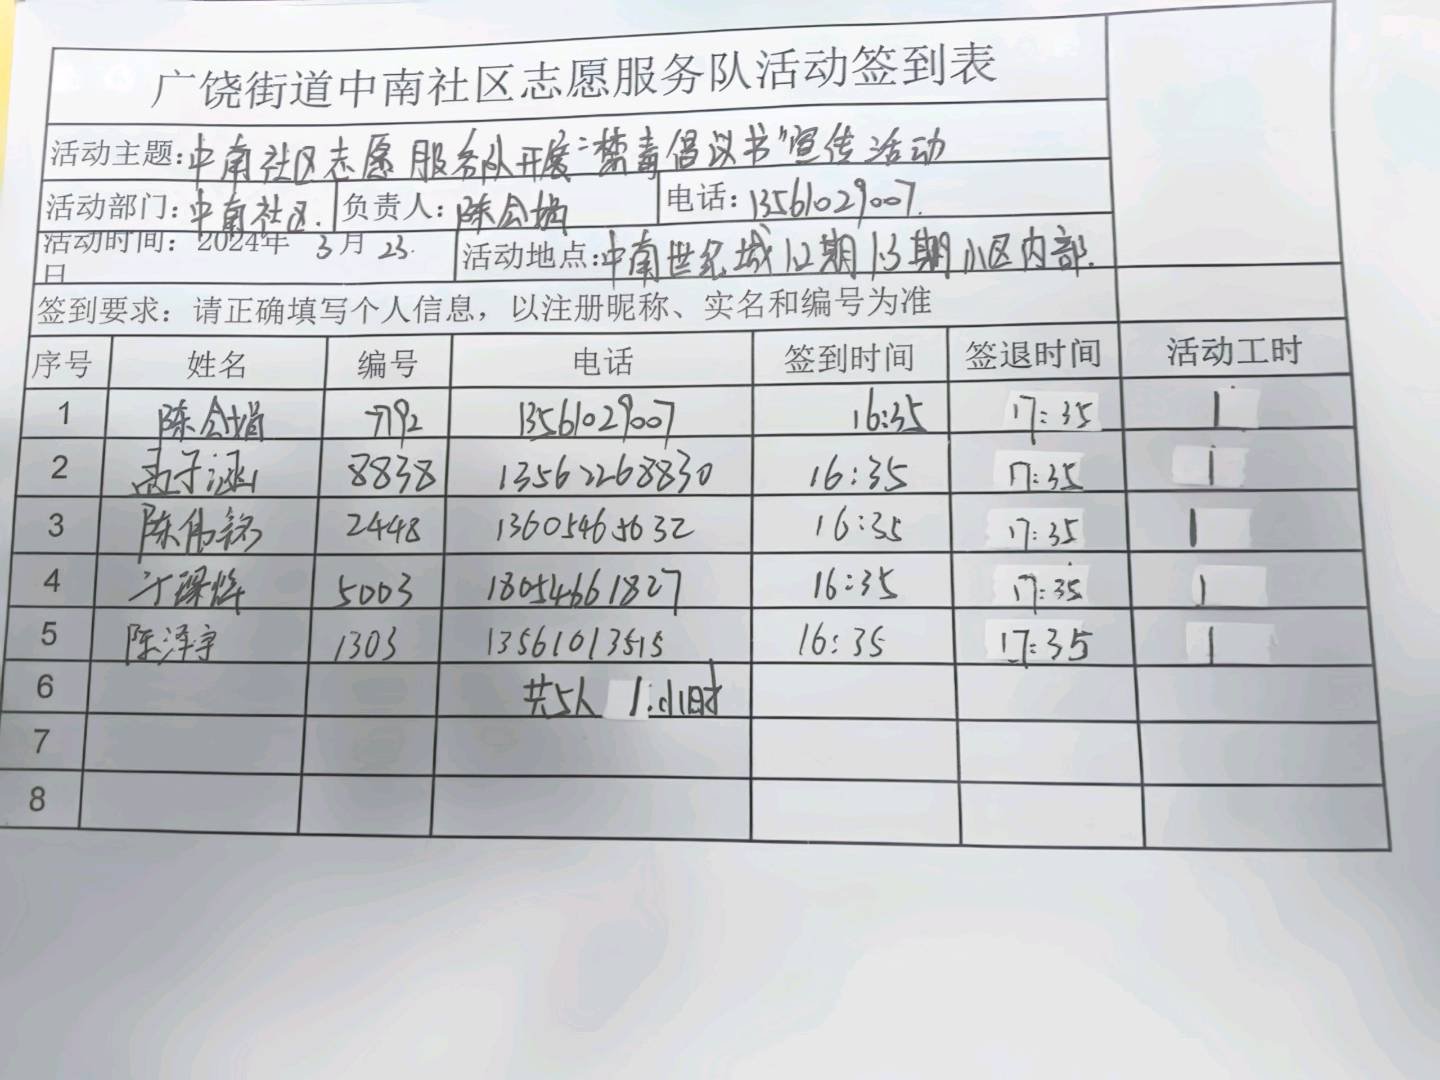 广饶街道中南社区志愿服务队活动签到表
活动主题：中南社区志愿服务队开展“禁毒倡议书”宣传活动
活动部门：中南社区. 负责人：陈会娟 电话：13561029007.
活动时间：2024年 3月 23. 活动地点：中南世纪城1.2期1.3期小区内部.
日
签到要求：请正确填写个人信息，以注册昵称、实名和编号为准
序号 姓名 编号 电话 签到时间 签退时间 活动工时
1 陈会娟 7792 13561029007 16:35 17:35 1
2 高子涵 8838 13562268830 16:35 17:35 1
3 陈伟铭 2448 13605465632 16:35 17:35 1
4 5003 18054661827 16:35 17:35 1
5 陈泽宇 1303 13561013515 16:35 17:35 1
6 共5人 1.小时
7
8